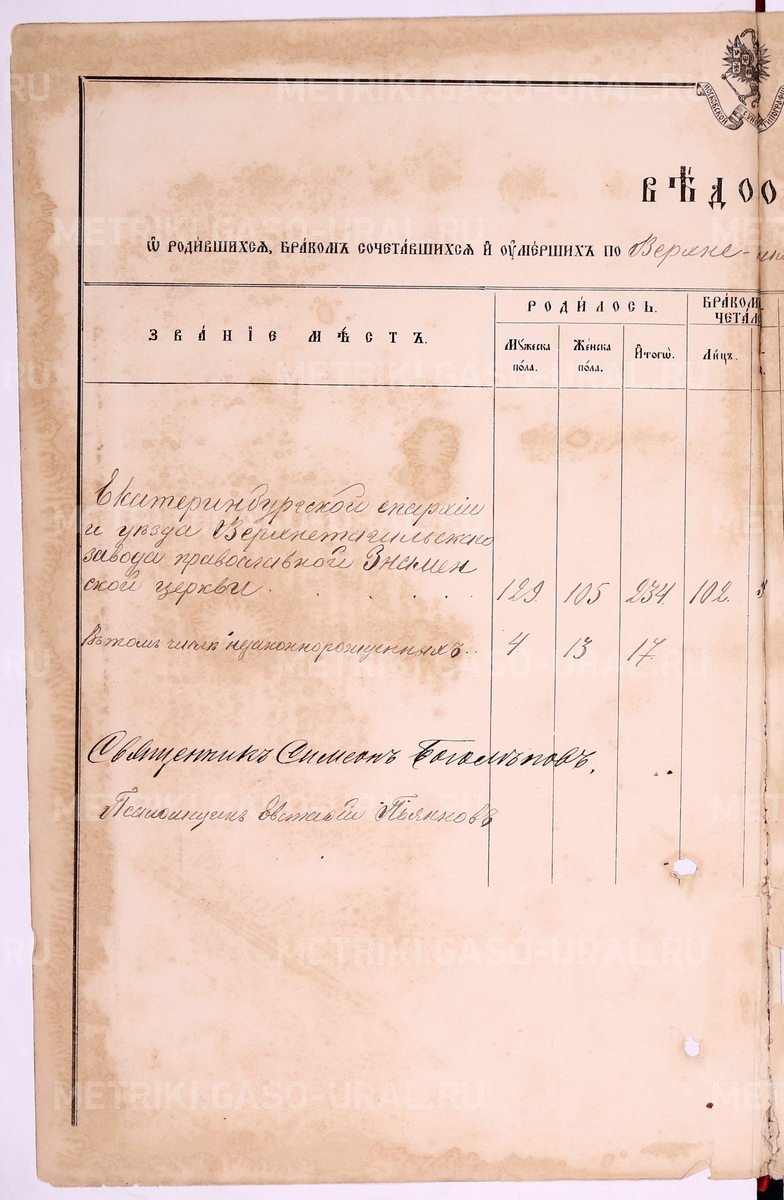 МОСКОВСКОЙ СѴНОД ТИПОГРАФІИ
ВѢДО
Ѡ РОДИ́ВШИХСЯ, БРА́КОМЪ СОЧЕТА́ВШИХСЯ И҆ ОУ҆МЕ́РШИХЪ ПО Верхне-
ЗВА́НІЕ МѢ́СТЪ.
РОДИ́ЛОСЬ.
БРА́КОМЪ
ЧЕТА́Л
Му́жеска по́ла.
Же́нска по́ла.
И҆тогѡ̀.
Ли́цъ.
Екатеринбургской епархіи
и уѣзда Верхнетагильскаго
завода православной Знамен
ской церкви 129. 105 234. 102.
Въ томъ числѣ незаконнорожденныхъ 4. 13 17.
Священникъ Симеонъ Боголѣповъ.
Псаломщикъ Евгеній Пьянковъ
METRIKI.GASO-URAL.RU